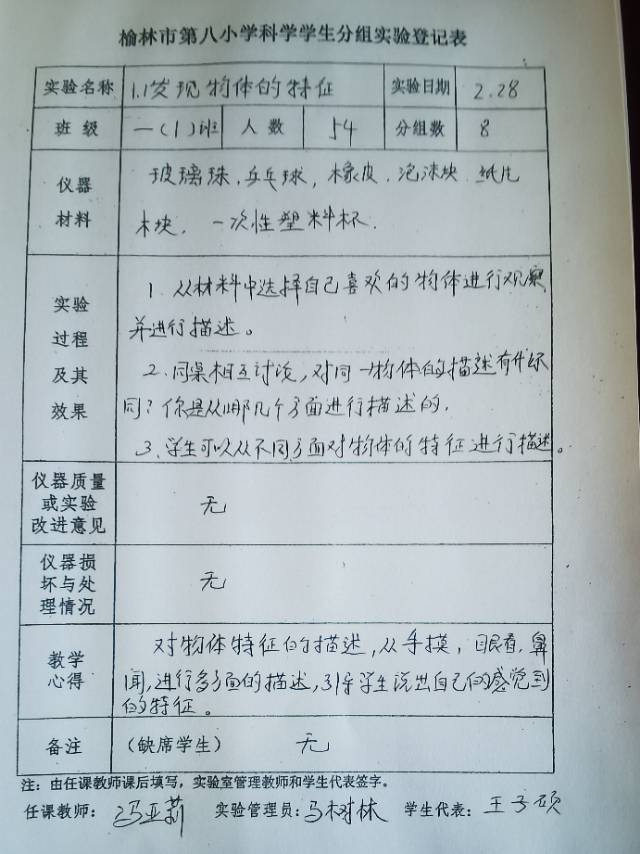 榆林市第八小学科学学生分组实验登记表
实验名称 1.1发现物体的特征 实验日期 2.28
班级 一(1)班 人数 54 分组数 8
仪器材料 玻璃珠、乒乓球，橡皮、泡沫块、纸片
木块、一次性塑料杯.
实验过程及其效果 1、从材料中选择自己喜欢的物体进行观察
并进行描述。
2、同桌相互讨论，对同一物体的描述有什么不
同？你是从哪几个方面进行描述的.
3、学生可以从不同方面对物体的特征进行描述。
仪器质量或实验改进意见 无
仪器损坏与处理情况 无
教学心得 对物体特征的描述，从手摸，眼看，鼻
闻，进行多方面的描述，引导学生说出自己的感觉到
的特征。
备注 (缺席学生) 无
注：由任课教师课后填写，实验室管理教师和学生代表签字。
任课教师：冯亚莉 实验管理员：马树林 学生代表：王子硕